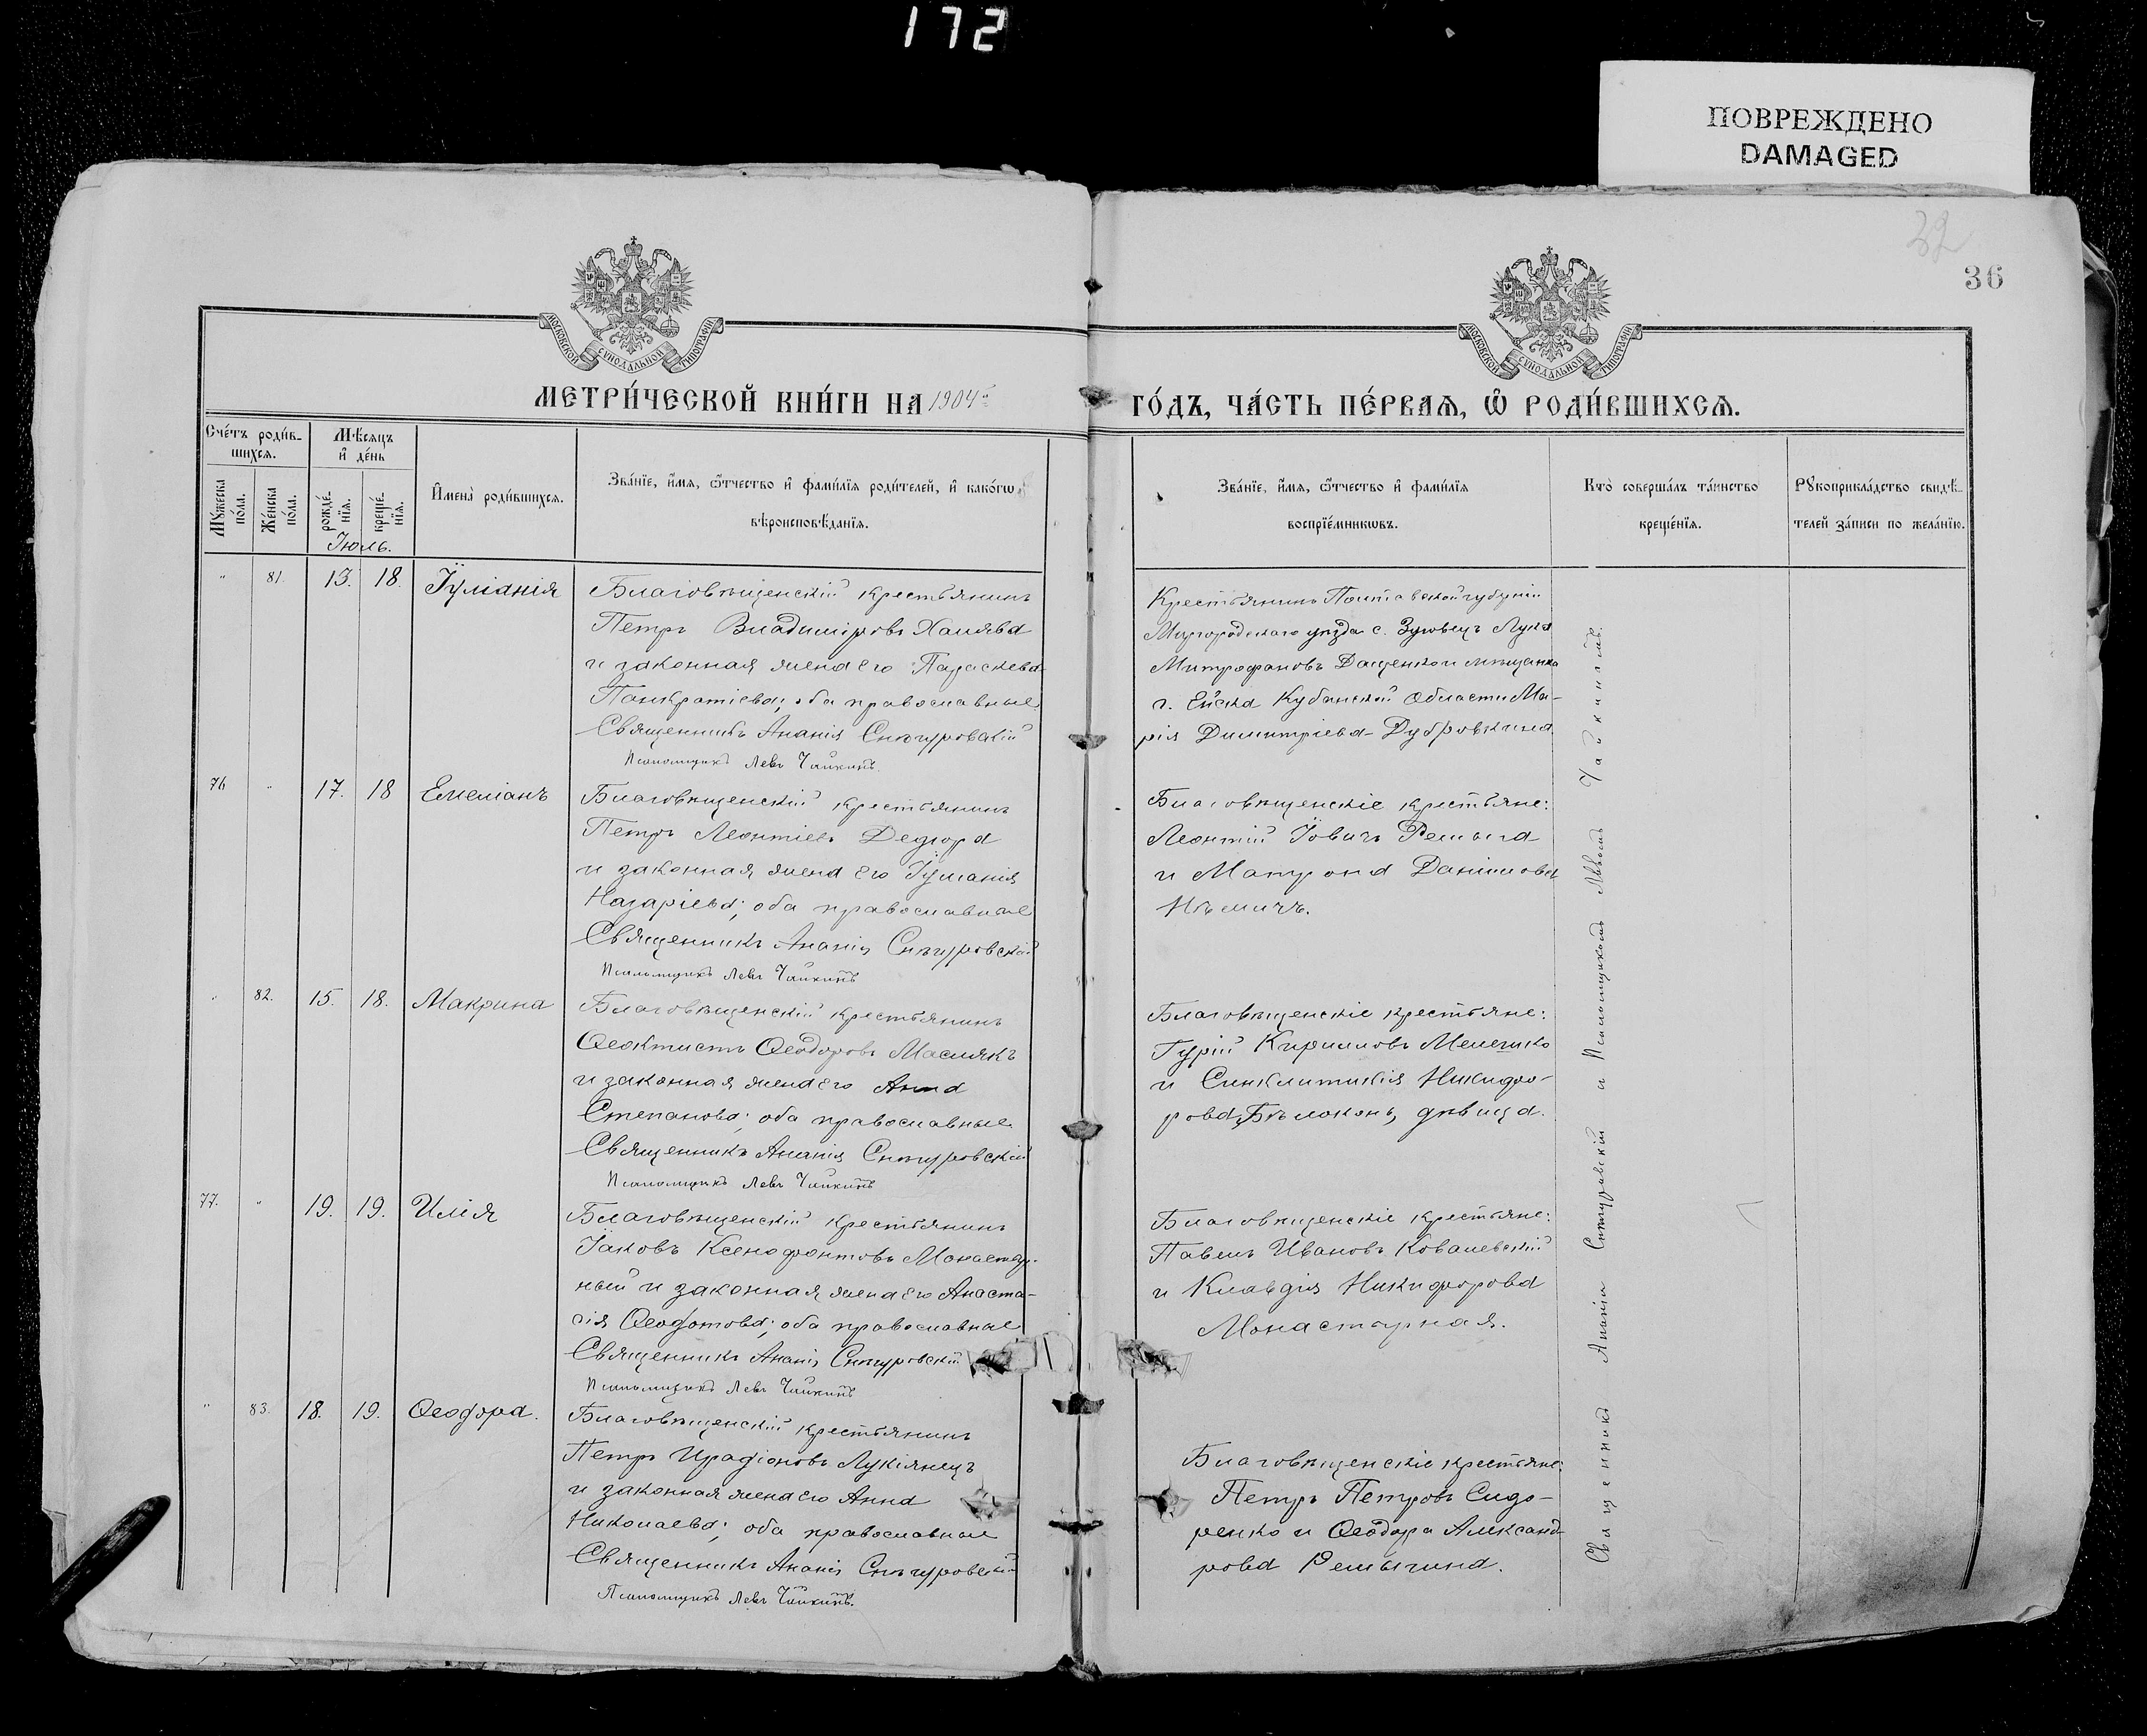 172
ПОВРЕЖДЕНО
DAMAGED
32
36
МОСКОВСКОЙ СѴНОДАЛЬНОЙ ТИПОГРАФІИ
МОСКОВСКОЙ СѴНОДАЛЬНОЙ ТИПОГРАФІИ
МЕТРИ́ЧЕСКОЙ КНИ́ГИ НА 1904й
ГО́ДЪ, ЧА́СТЬ ПЕ́РВАѦ, Ѡ҆ РОДИ́ВШИХСѦ.
Сче́тъ роди́в-
шихсѧ.
Мѣ́сѧцъ
и҆ де́нь
Мꙋ́жеска по́ла.
Же́нска по́ла.
рожде́-
нїѧ.
креще́-
нїѧ.
И҆мена̀ роди́вшихсѧ.
Зва́нїе, и҆́мѧ, ѻ҆́тчество и҆ фами́лїѧ роди́телей, и҆ како́гѡ
вѣроисповѣ́данїѧ.
Зва́нїе, и҆́мѧ, ѻ҆́тчество и҆ фами́лїѧ
воспрїе́мникѡвъ.
Кто̀ соверша́лъ та́инство
креще́нїѧ.
Рꙋкоприкла́дство свидѣ́-
телей за́писи по жела́нїю.
Іюль.
" 81. 13. 18. Іуліанія
Благовѣщенскій крестьянинъ
Петръ Владиміровъ Халява
и законная жена его Параскева
Панкратіева; оба православные
Священникъ Ананія Снѣгуровскій
Псаломщикъ Левъ Чайкинъ.
Крестьянинъ Полтавской губерніи
Миргородскаго уѣзда с. Зуовецъ Лука
Митрофановъ Даценко и мѣщанка
г. Ейска Кубанской области Ма-
рія Димитріева Дубровкина.
76 " 17. 18 Емеліанъ
Благовѣщенскій крестьянинъ
Петръ Леонтіевъ Дедюра
и законная жена его Іуліанія
Назаріева; оба православные
Священникъ Ананія Снѣгуровскій
Псаломщикъ Левъ Чайкинъ
Благовѣщенскіе крестьяне:
Леонтій Іовичъ Ремыга
и Матрона Даніилова
Нѣмичъ.
" 82. 15. 18. Макрина
Благовѣщенскій крестьянинъ
Ѳеоктистъ Ѳеодоровъ Маслякъ
и законная жена его Анна
Степанова; оба православные.
Священникъ Ананія Снѣгуровскій
Псаломщикъ Левъ Чайкинъ
Благовѣщенскіе крестьяне:
Гурій Кирилловъ Мелешко
и Синклитикія Никифо-
рова Бѣлоконь, дѣвица.
77. " 19. 19. Илія
Благовѣщенскій крестьянинъ
Іаковъ Ксенофонтовъ Монастыр-
ный и законная жена его Анаста-
сія Ѳеодотова; оба православные
Священникъ Ананія Снѣгуровскій
Псаломщикъ Левъ Чайкинъ
Благовѣщенскіе крестьяне:
Павелъ Ивановъ Ковалевскій
и Клавдія Никифорова
Монастырная.
" 83. 18. 19. Ѳеодора.
Благовѣщенскій крестьянинъ
Петръ Иродіоновъ Лукіянецъ
и законная жена его Анна
Николаева; оба православные
Священникъ Ананія Снѣгуровскій
Псаломщикъ Левъ Чайкинъ.
Благовѣщенскіе крестьяне:
Петръ Петровъ Сидо-
ренко и Ѳеодора Александ-
рова Ремыгина.
Священникъ Ананія Снѣгуровскій и Псаломщикомъ Львомъ Чайкинымъ.